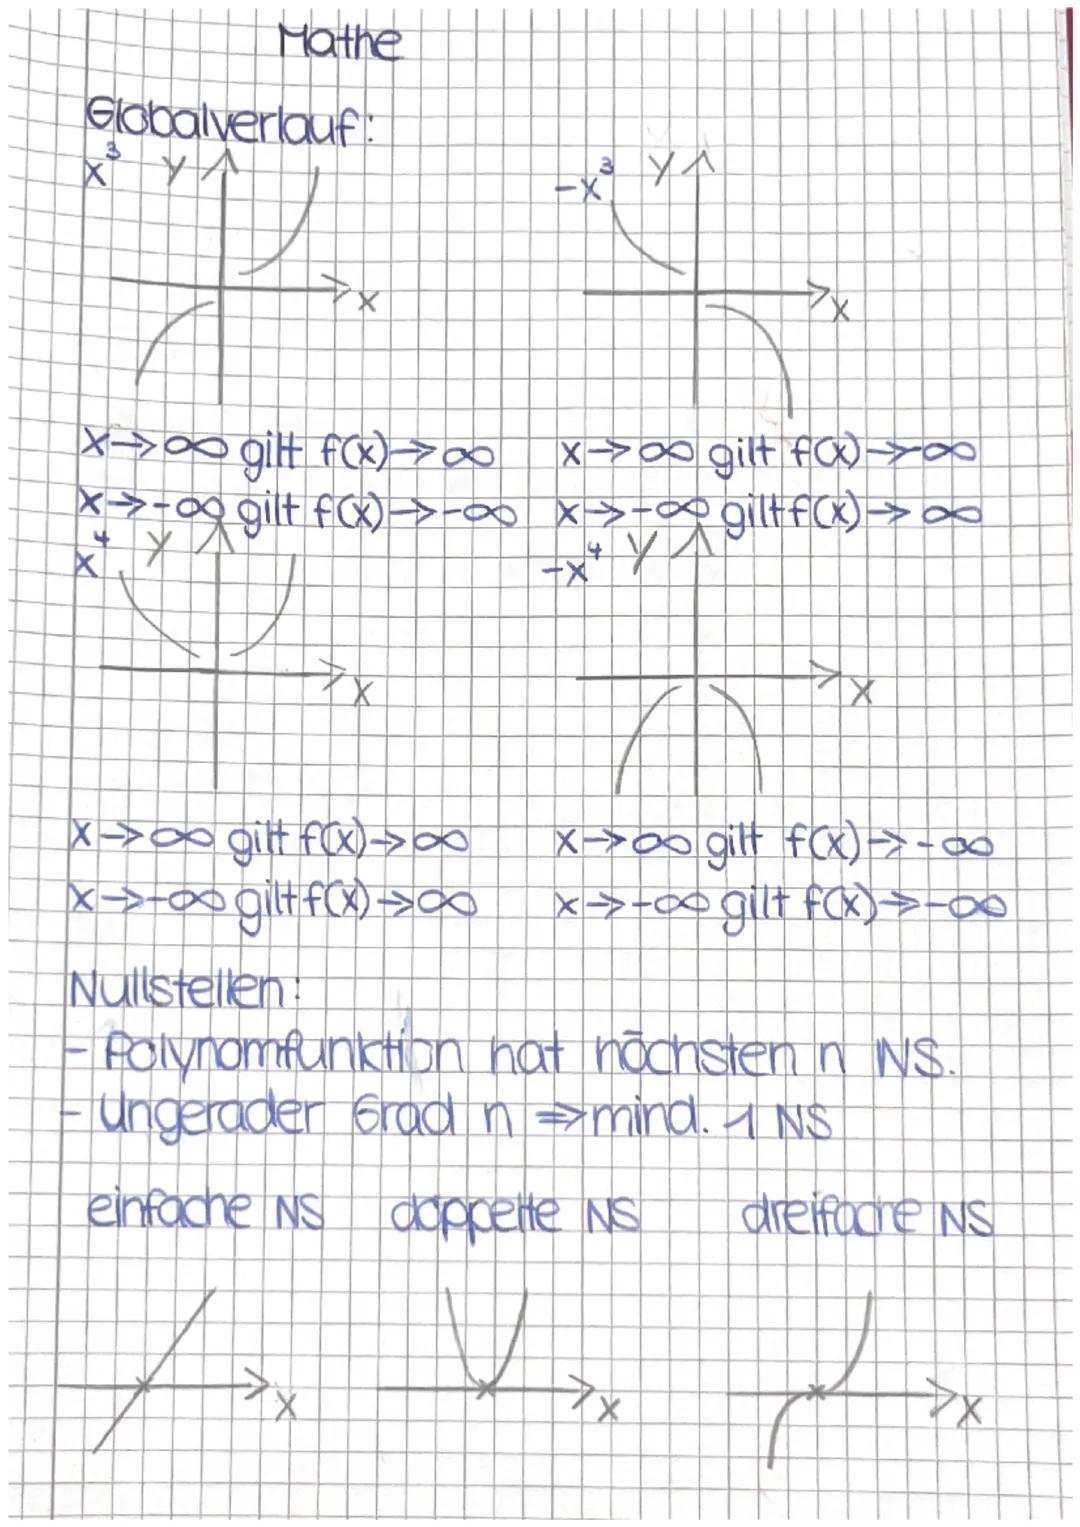 Mathe
Globalverlauf:
x³ y x
-x³ y x
x→∞ gilt f(x)→∞ x→∞ gilt f(x)→-∞
x→-∞ gilt f(x)→-∞ x→-∞ gilt f(x)→∞
x⁴ y x
-x⁴ y x
x→∞ gilt f(x)→∞ x→∞ gilt f(x)→-∞
x→-∞ gilt f(x)→∞ x→-∞ gilt f(x)→-∞
Nullstellen:
- Polynomfunktion hat höchsten n NS.
- Ungerader Grad n ⇒ mind. 1 NS
einfache NS doppelte NS dreifache NS
x x x